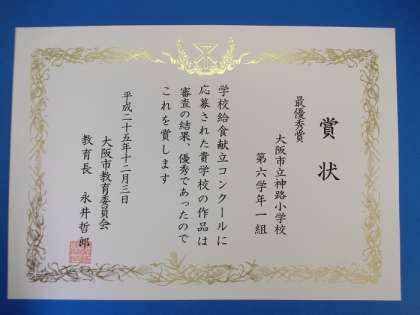 賞状
最優秀賞
大阪市立神路小学校
第六学年一組
学校給食献立コンクールに
応募された貴学校の作品は
審査の結果、優秀であったので
これを賞します
平成二十五年十二月三日
大阪市教育委員会
教育長 永井哲郎